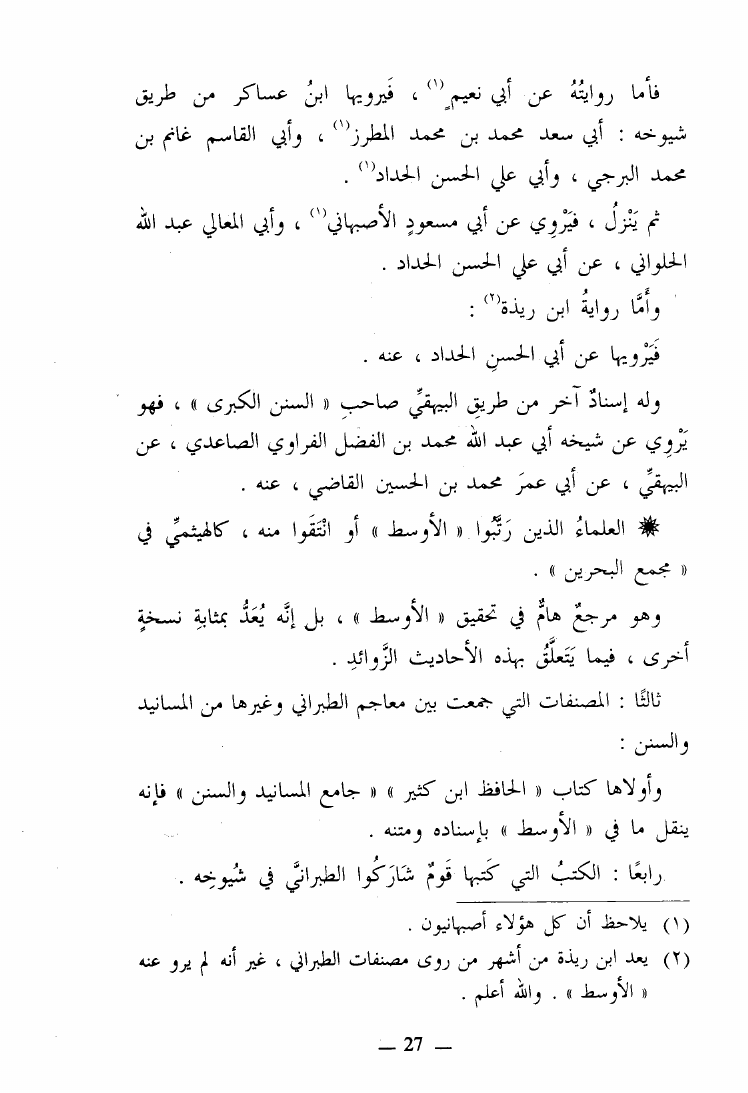 فأما روايتُهُ عن أبي نعيمٍ(١) ، فَيرويها ابنُ عساكر من طريق
شيوخه : أبي سعد محمد بن محمد المطرز(١) ، وأبي القاسم غانم بن
محمد البرجي ، وأبي علي الحسن الحداد(١) .
ثم يَنْزلُ ، فيَرْوِي عن أبي مسعودٍ الأصبهاني(١) ، وأبي المعالي عبد الله
الحلواني ، عن أبي علي الحسن الحداد .
وأَمَّا روايةُ ابن ريذة(٢) :
فَيَرْويها عن أبي الحسنِ الحداد ، عنه .
وله إسنادٌ آخر من طريقِ البيهقيِّ صاحبِ « السنن الكبرى » ، فهو
يَرْوِي عن شيخه أبي عبد الله محمد بن الفضل الفراوي الصاعدي ، عن
البيهقيِّ ، عن أبي عمرَ محمد بن الحسين القاضي ، عنه .
✸ العلماءُ الذين رَتَّبُوا « الأوسط » أو انْتَقَوا منه ، كالهيثميِّ في
« مجمع البحرين » .
وهو مرجعٌ هامٌّ في تحقيق « الأوسط » ، بل إنَّه يُعَدُّ بمثابةِ نسخةٍ
أخرى ، فيما يَتَعلَّقُ بهذه الأحاديث الزَّوائدِ .
ثالثًا : المصنفات التي جمعت بين معاجم الطبراني وغيرها من المسانيد
والسنن :
وأولاها كتاب « الحافظ ابن كثير » « جامع المسانيد والسنن » فإنه
ينقل ما في « الأوسط » بإسناده ومتنه .
رابعًا : الكتبُ التي كَتبها قَومٌ شَارَكُوا الطبرانيَّ في شُيوخِه .
(١) يلاحظ أن كل هؤلاء أصبهانيون .
(٢) يعد ابن ريذة من أشهر من روى مصنفات الطبراني ، غير أنه لم يرو عنه
« الأوسط » . والله أعلم .
— 27 —